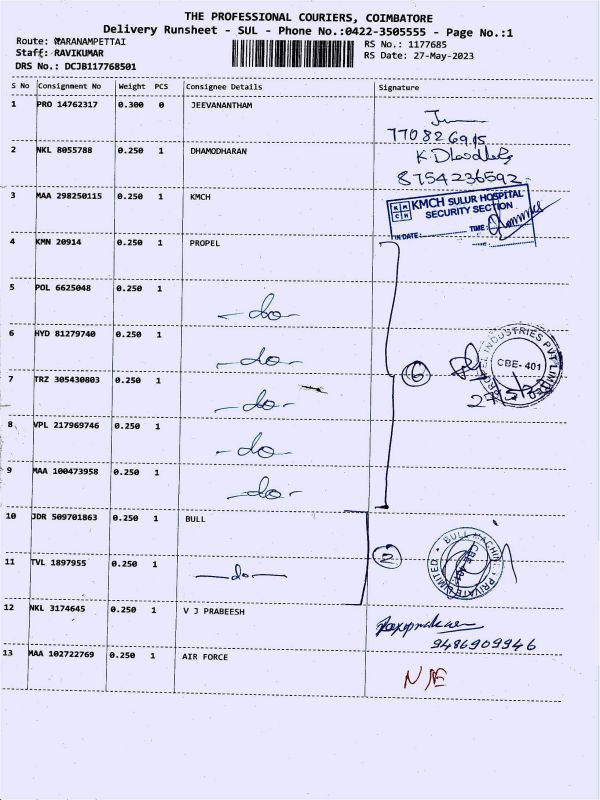 THE PROFESSIONAL COURIERS, COIMBATORE
Delivery Runsheet - SUL - Phone No.:0422-3505555 - Page No.:1
Route: KARANAMPETTAI
RS No.: 1177685
Staff: RAVIKUMAR
RS Date: 27-May-2023
DRS No.: DCJB117768501
S No Consignment No Weight PCS Consignee Details Signature
1 PRO 14762317 0.300 0 JEEVANANTHAM
2 NKL 8055788 0.250 1 DHAMODHARAN
8754236592
3 MAA 298250115 0.250 1 KMCH
KMCH SULUR HOSPITAL
SECURITY SECTION
IN DATE: TIME:
4 KMN 20914 0.250 1 PROPEL
5 POL 6625048 0.250 1 -do-
6 HYD 81279740 0.250 1 -do-
7 TRZ 305430803 0.250 1 -do-
8 VPL 217969746 0.250 1 -do-
9 MAA 100473958 0.250 1 -do-
6
PROPEL INDUSTRIES PVT LIMITED
CBE- 401
10 JDR 509701863 0.250 1 BULL
11 TVL 1897955 0.250 1 -do-
2
BULL MACHINES PRIVATE LIMITED
12 NKL 3174645 0.250 1 V J PRABEESH
9486909946
13 MAA 102722769 0.250 1 AIR FORCE